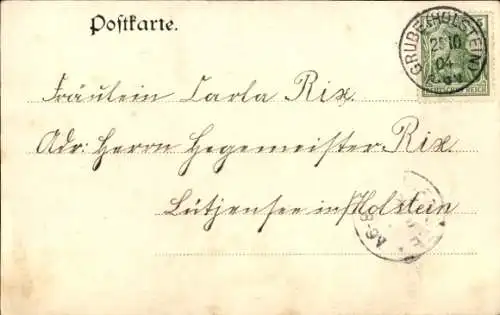 Postkarte.
GRUBE (HOLSTEIN)
23 10
04
DEUTSCHES REICH
Fräulein Carla Rix.
Adr: Herrn Hegemeister Rix.
Lütjensee in/Holstein